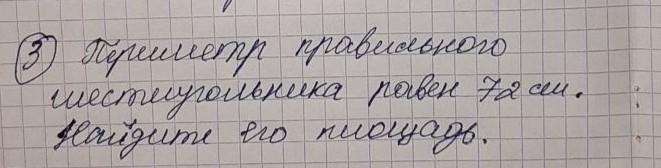 ③ Периметр правильного
шестиугольника равен 72 см.
Найдите его площадь.